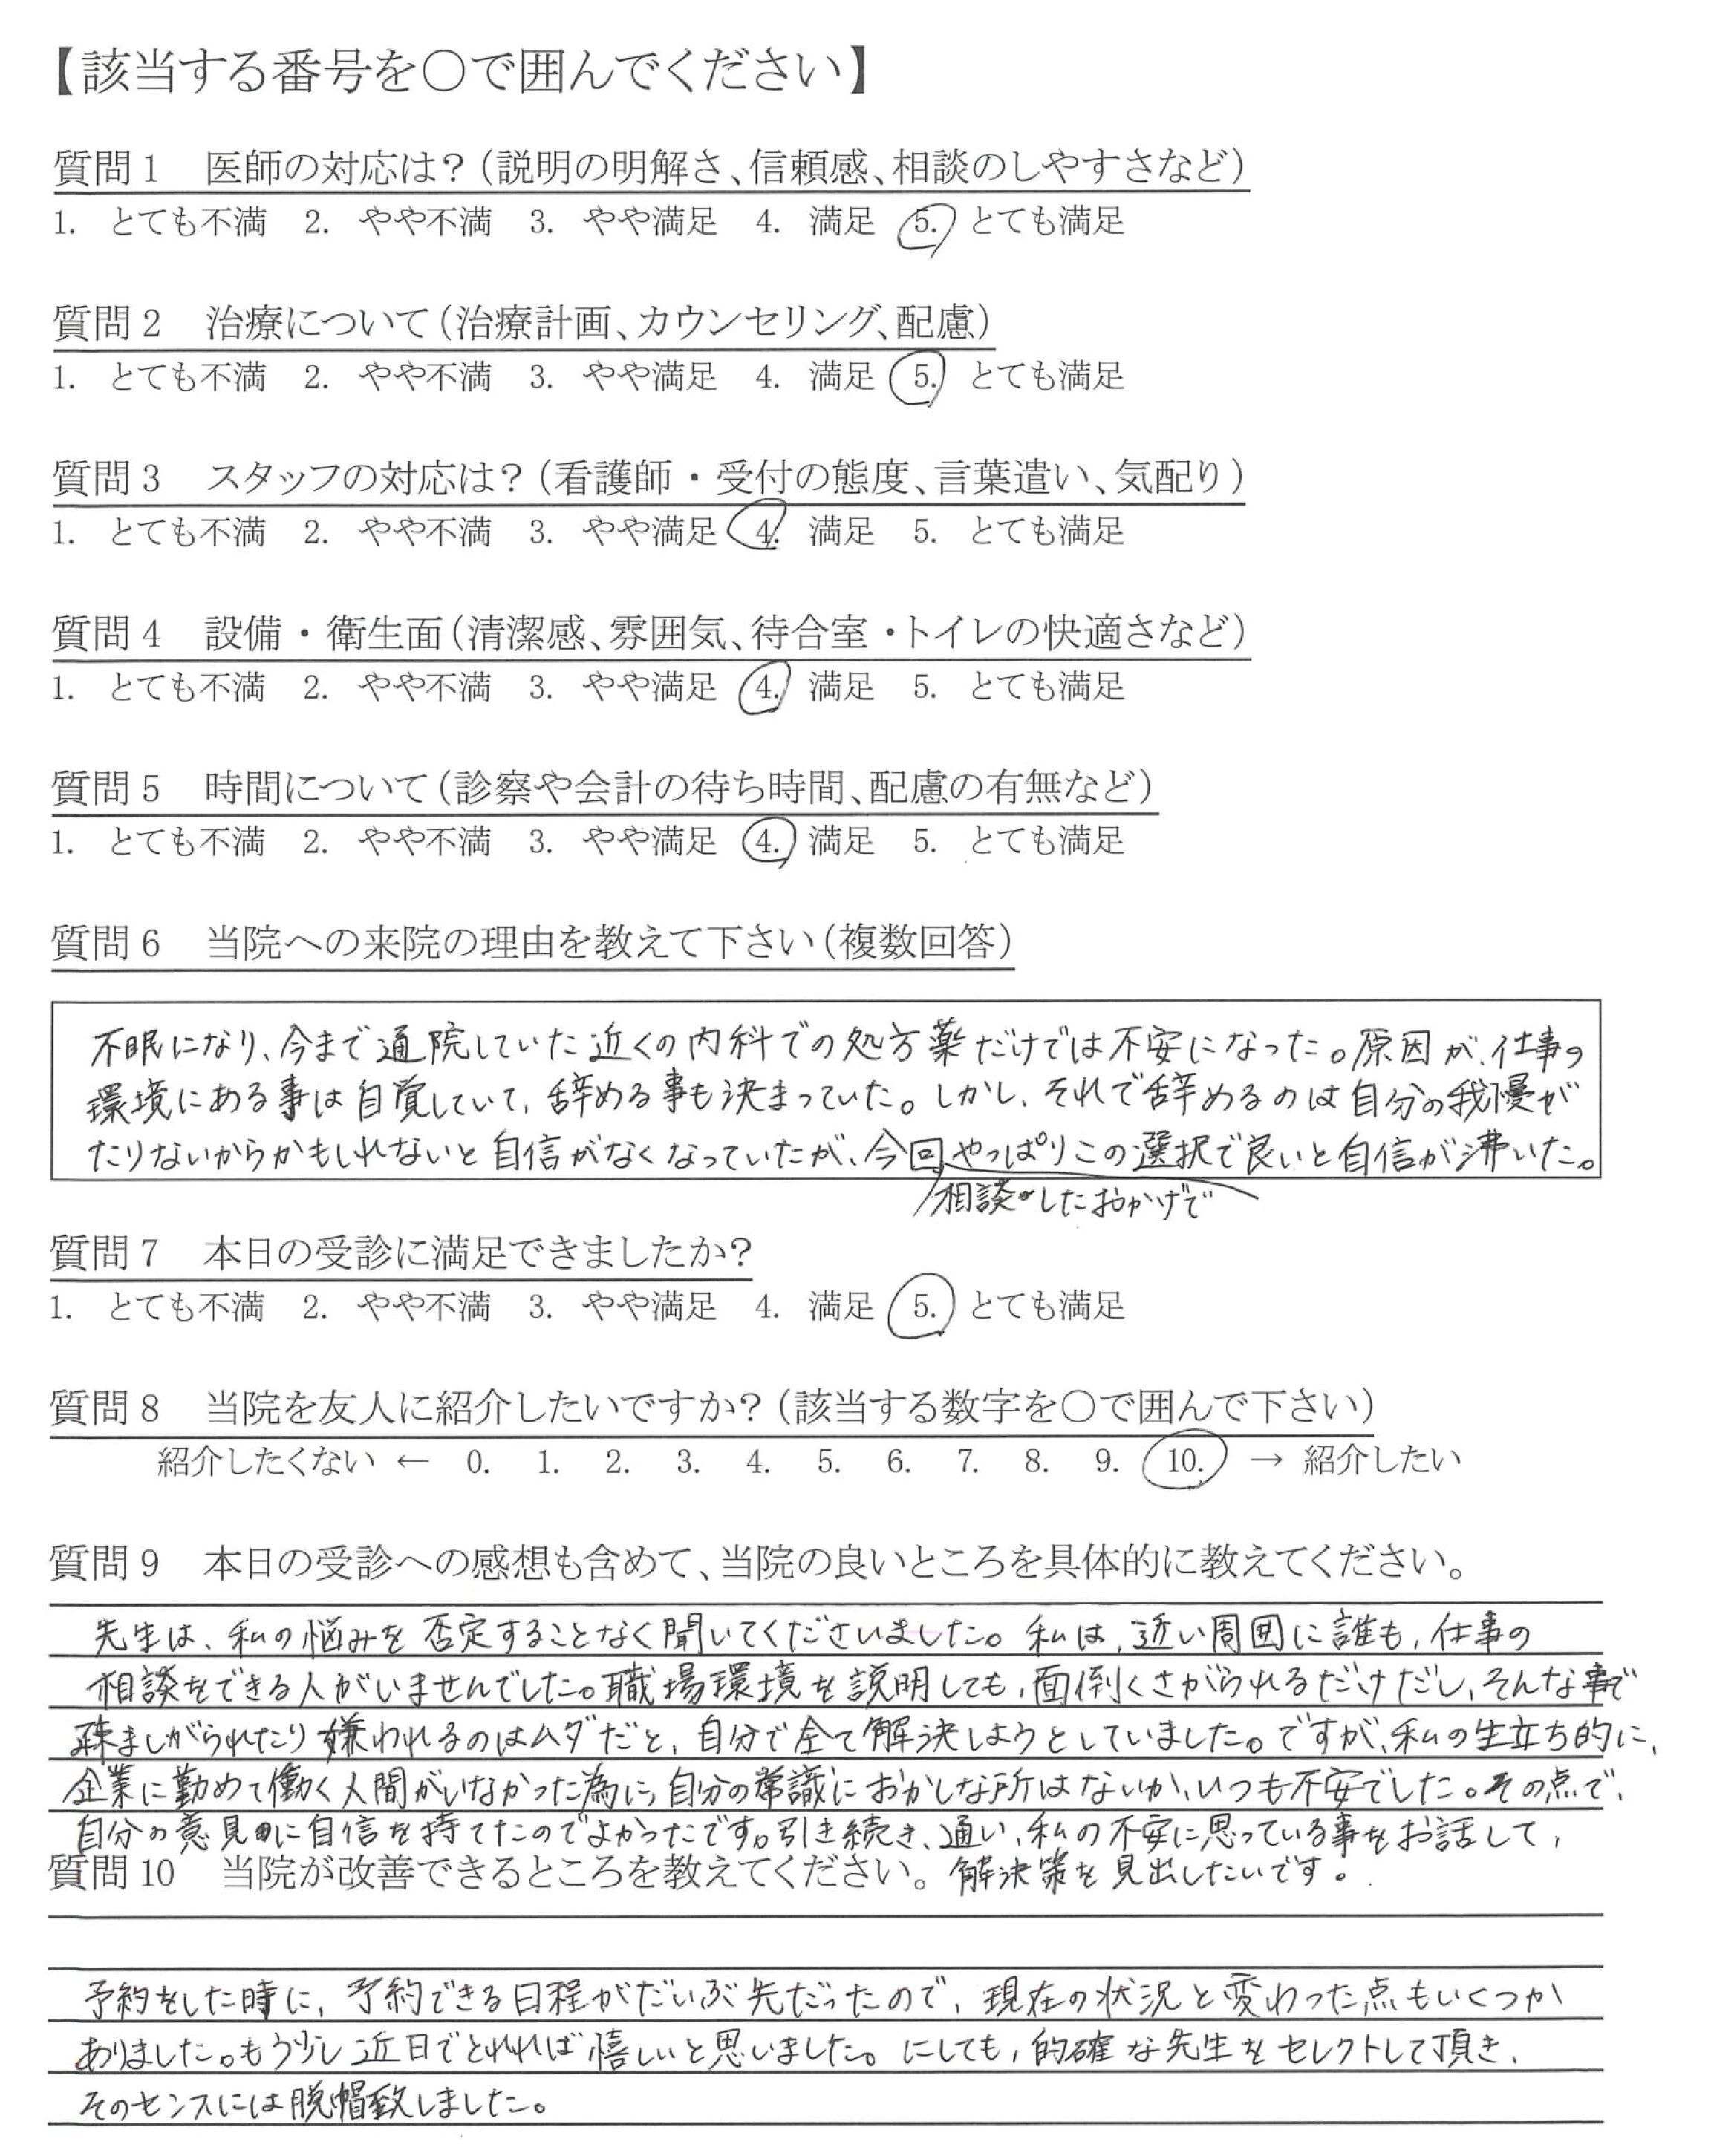 【該当する番号を○で囲んでください】
質問1　医師の対応は？（説明の明解さ、信頼感、相談のしやすさなど）
1. とても不満　2. やや不満　3. やや満足　4. 満足　5. とても満足
質問2　治療について（治療計画、カウンセリング、配慮）
1. とても不満　2. やや不満　3. やや満足　4. 満足　5. とても満足
質問3　スタッフの対応は？（看護師・受付の態度、言葉遣い、気配り）
1. とても不満　2. やや不満　3. やや満足　4. 満足　5. とても満足
質問4　設備・衛生面（清潔感、雰囲気、待合室・トイレの快適さなど）
1. とても不満　2. やや不満　3. やや満足　4. 満足　5. とても満足
質問5　時間について（診察や会計の待ち時間、配慮の有無など）
1. とても不満　2. やや不満　3. やや満足　4. 満足　5. とても満足
質問6　当院への来院の理由を教えて下さい（複数回答）
不眠になり、今まで通院していた近くの内科での処方薬だけでは不安になった。原因が、仕事の
環境にある事は自覚していて、辞める事も決まっていた。しかし、それで辞めるのは自分の我慢が
たりないからかもしれないと自信がなくなっていたが、今回やっぱりこの選択で良いと自信が沸いた。
相談したおかげで
質問7　本日の受診に満足できましたか？
1. とても不満　2. やや不満　3. やや満足　4. 満足　5. とても満足
質問8　当院を友人に紹介したいですか？（該当する数字を○で囲んで下さい）
紹介したくない ← 0. 1. 2. 3. 4. 5. 6. 7. 8. 9. 10. → 紹介したい
質問9　本日の受診への感想も含めて、当院の良いところを具体的に教えてください。
先生は、私の悩みを否定することなく聞いてくださいました。私は、近い周囲に誰も、仕事の
相談をできる人がいませんでした。職場環境を説明しても、面倒くさがられるだけだし、そんな事で
疎ましがられたり嫌われるのはムダだと、自分で全て解決しようとしていました。ですが、私の生立ち的に、
企業に勤めて働く人間がいなかった為に、自分の常識におかしな所はないか、いつも不安でした。その点で、
自分の意見に自信を持てたのでよかったです。引き続き、通い、私の不安に思っている事をお話して、
解決策を見出したいです。
質問10　当院が改善できるところを教えてください。
予約をした時に、予約できる日程がだいぶ先だったので、現在の状況と変わった点もいくつか
ありました。もう少し近日でとれれば嬉しいと思いました。にしても、的確な先生をセレクトして頂き、
そのセンスには脱帽致しました。